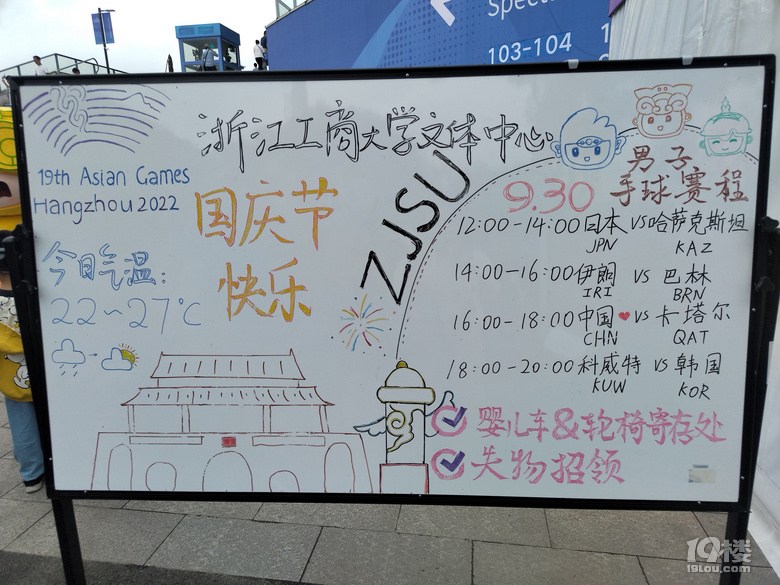 Spect
103-104
1
浙江工商大学文体中心
ZJSU
19th Asian Games
Hangzhou 2022
国庆节
快乐
今日气温:
22~27℃
9.30 男子
手球赛程
12:00-14:00 日本 VS 哈萨克斯坦
JPN KAZ
14:00-16:00 伊朗 VS 巴林
IRI BRN
16:00-18:00 中国 VS 卡塔尔
CHN QAT
18:00-20:00 科威特 VS 韩国
KUW KOR
婴儿车&轮椅寄存处
失物招领
19楼
19lou.com